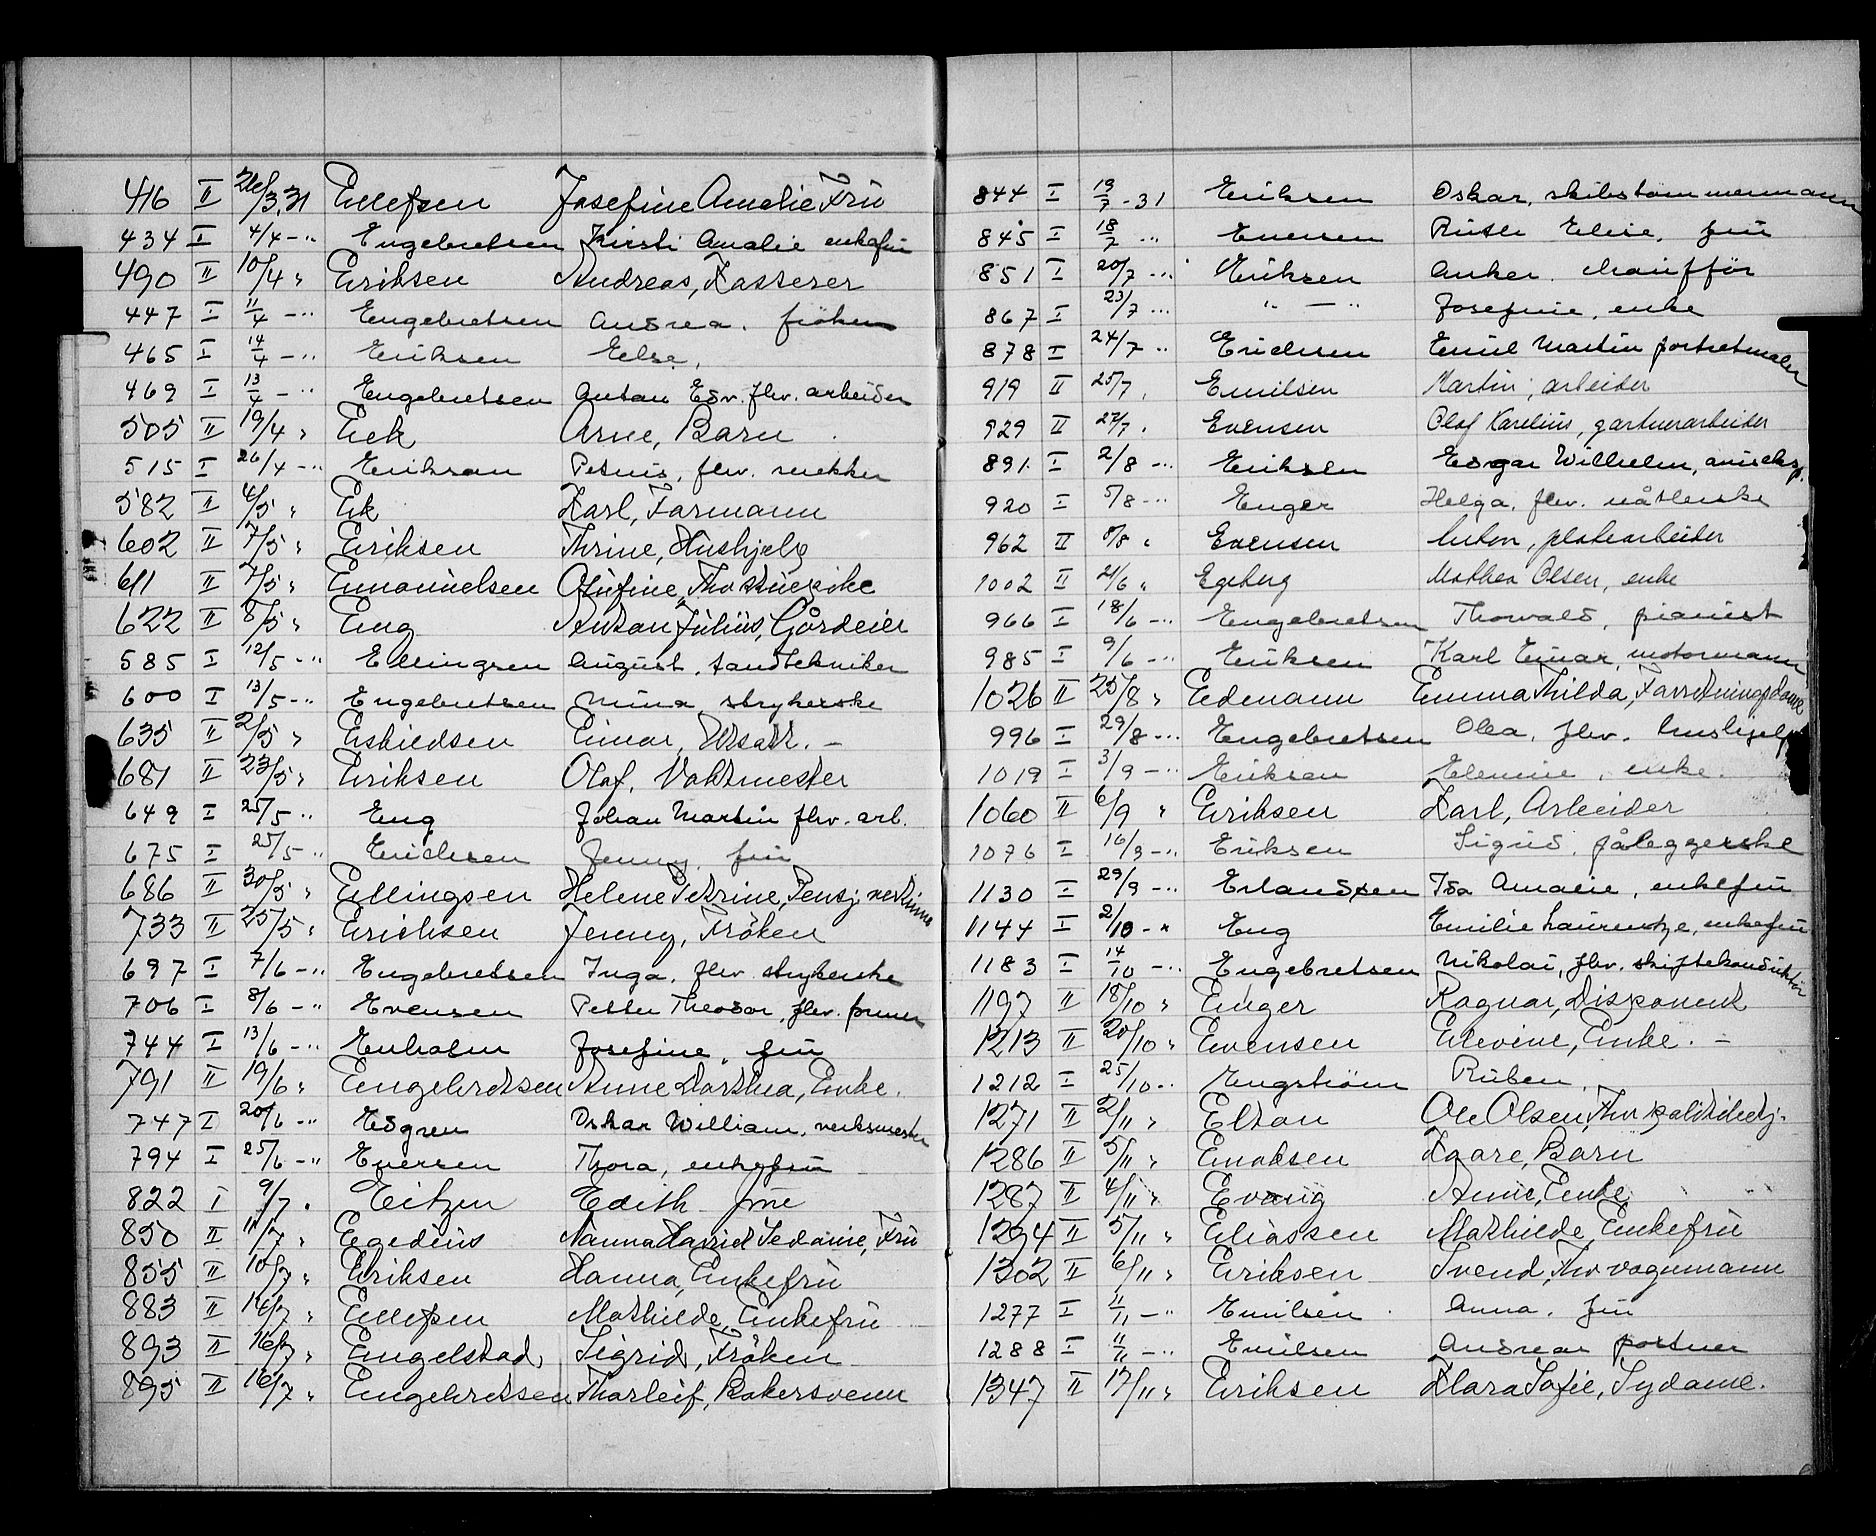 416 II 26/3.31 Ellefsen Josefine Amalie Frü
434 I 4/4 -" Engebretsen Kirsti Amalie enkefrü
490 II 10/4 " Eriksen Andreas, Kasserer
447 I 11/4 -" Engebretsen Andrea. frøken
465 I 14/4 -" Eriksen Else,
469 I 13/4 -" Engebretsen Anton Edv. fhv. arbeider
505 II 19/4 " Eek Arne, Barn
515 I 26/4 -" Eriksen Petrus, fhv. snekker
582 II 4/5 " Ek Karl, Formann
602 II 7/5 " Eriksen Thrine, Hushjelp
611 II 7/5 " Emanuelsen Olufine, Thv
622 II 8/5 " Eng Anton Julius, Gårdeier
585 I 12/5 -" Ellingsen August. tandtekniker
600 I 13/5 -" Engebretsen Mina, strykerske
635 II 2/5 " Eskildsen Einar, Ulsatr. -
681 II 23/5 " Eriksen Olaf, Vaktmester
649 I 25/5 " Eng Johan Martin fhv. arb.
675 I 25/5 " Erichsen Jenny, frü
686 II 30/5 " Ellingsen Helene Petrine, Pensj. vertinne
733 II 25/5 " Erichsen Jenny, Frøken
697 I 7/6 -" Engebretsen Inga. fhv. strykerske
706 I 8/6 -" Evensen Petter Theodor, fhv. former
744 I 13/6 -" Enholm Josefine, frü
791 II 19/6 " Engebretsen Anne Dorthea, Enke.
747 I 20/6 -" Edgren Oskar William. verksmester
794 I 25/6 -" Eversen Thora, enkefrü
822 I 9/7 . Eitzen Edith frue
850 II 11/7 " Egedius Nanna Harriet Sedanie, Frü
855 II 10/7 " Eriksen Hanna, Enkefrü
883 II 14/7 " Ellefsen Mathilde, Enkefrü
893 II 16/7 " Engelstad, Sigrid, Frøken
895 II 16/7 " Engebretsen Thorleif, Bakersvenn
844 I 13/7 - 31 Eriksen Oskar, skibstømmermann
845 I 18/7 " Evensen Ruth Elise, frü
851 I 20/7 -" Eriksen Anker. chaufför
867 I 23/7 -" " — " Josefine, enke
878 I 24/7 " Erichsen Emil Martin portretmaler
919 II 25/7 . Emilsen Martin, arbeider
929 II 27/7 . Evensen Olaf Karelius, gartnerarbeider
891 I 2/8 -" Eriksen Edgar Wilhelm, aviseksp.
920 I 5/8 -" Enger Helga, fhv. nåtlerske
962 II 8/8 " Evensen Anton, platearbeider
1002 II 21/6 " Egeberg Mathea Olsen, enke
966 I 18/6 -" Engebretsen Thorvald, pianist
985 I 9/6 -" Eriksen Karl Einar, motormann
1026 II 25/8 " Eedemann Emma Thilda, Forretningsdame
996 I 29/8 -" Engebretsen Olea, fhv. hushjelp
1019 I 3/9 -" Eriksen Helmine, enke.
1060 II 6/9 " Eriksen Karl, Arbeider
1076 I 16/9 -" Eriksen Sigrid, påleggerske
1130 I 29/9 -" Erlandsen Ida Amalie, enkefrü
1144 I 2/10 - " Eng Emilie Laurentze, enkefrü
1183 I 14/10 -" Engebretsen Nikolai, fhv. skiftekonduktør
1197 II 18/10 " Enger Ragnar, Disponent
1213 II 20/10 " Evensen Elevine, Enke. -
1212 I 25/10 -" Engstrøm Ruben.
1271 II 2/11 " Elton Ole Olsen, Thv politibetj.
1286 II 5/11 " Enoksen Kaare, Barn
1287 II 4/11 " Evang Anne, Enke
1294 II 5/11 " Eliassen Mathilde, Enkefrü
1302 II 6/11 " Eriksen Svend, Thv vognmann
1277 I 11/11 -" Emilsen Anna. frü
1288 I 11/11 -" Emilsen Andreas portner
1347 II 17/11 " Eriksen Klara Sofie, Sydame.